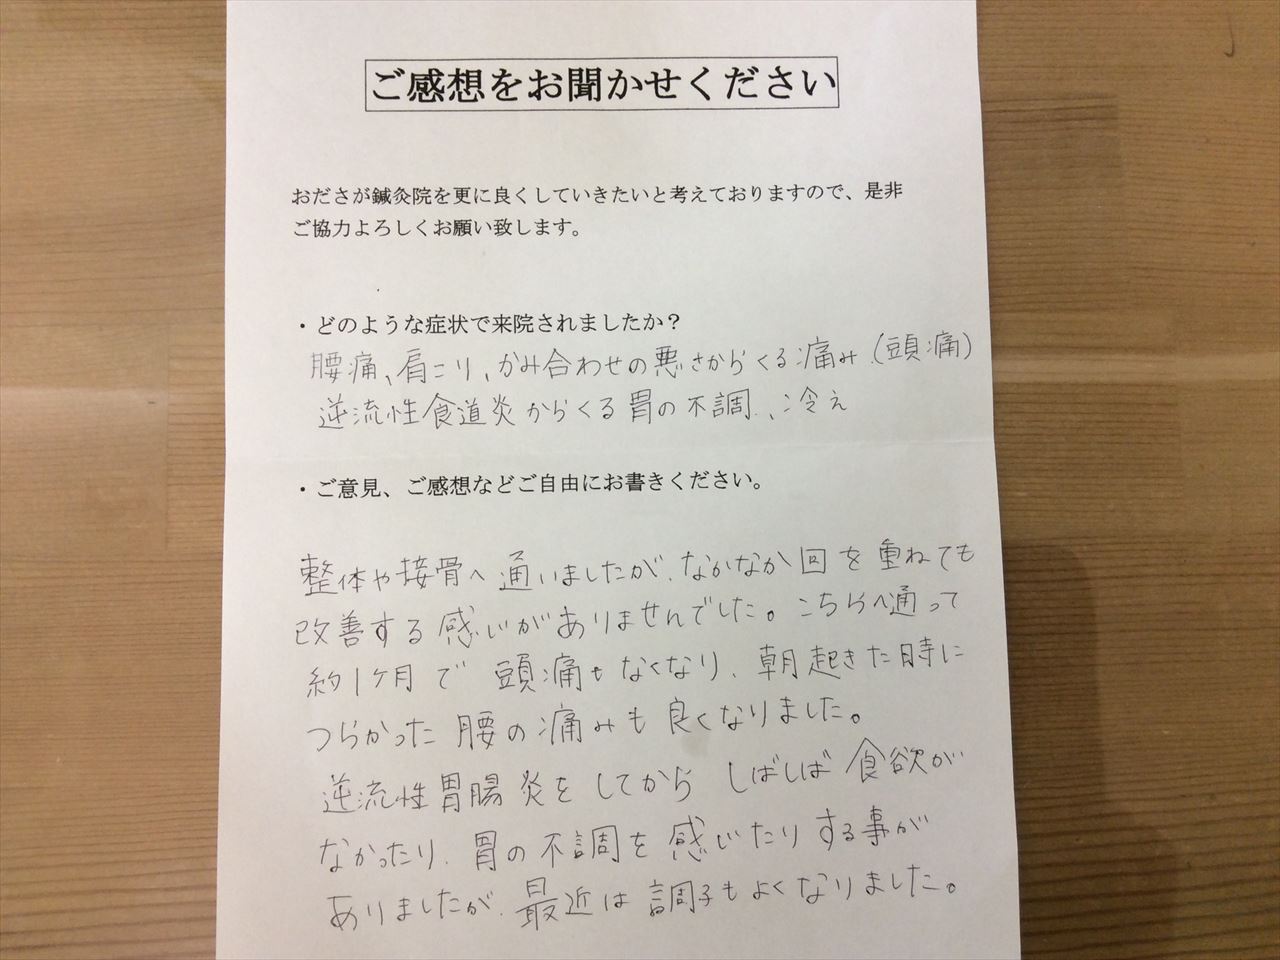 ご感想をお聞かせください
おださが鍼灸院を更に良くしていきたいと考えておりますので、是非
ご協力よろしくお願い致します。
・どのような症状で来院されましたか？
腰痛、肩こり、かみ合わせの悪さからくる痛み、(頭痛)
逆流性食道炎からくる胃の不調、冷え
・ご意見、ご感想などご自由にお書きください。
整体や接骨へ通いましたが、なかなか回を重ねても
改善する感じがありませんでした。こちらへ通って
約1ヶ月で頭痛もなくなり、朝起きた時に
つらかった腰の痛みも良くなりました。
逆流性胃腸炎をしてからしばしば食欲が
なかったり、胃の不調を感じたりする事が
ありましたが、最近は調子もよくなりました。